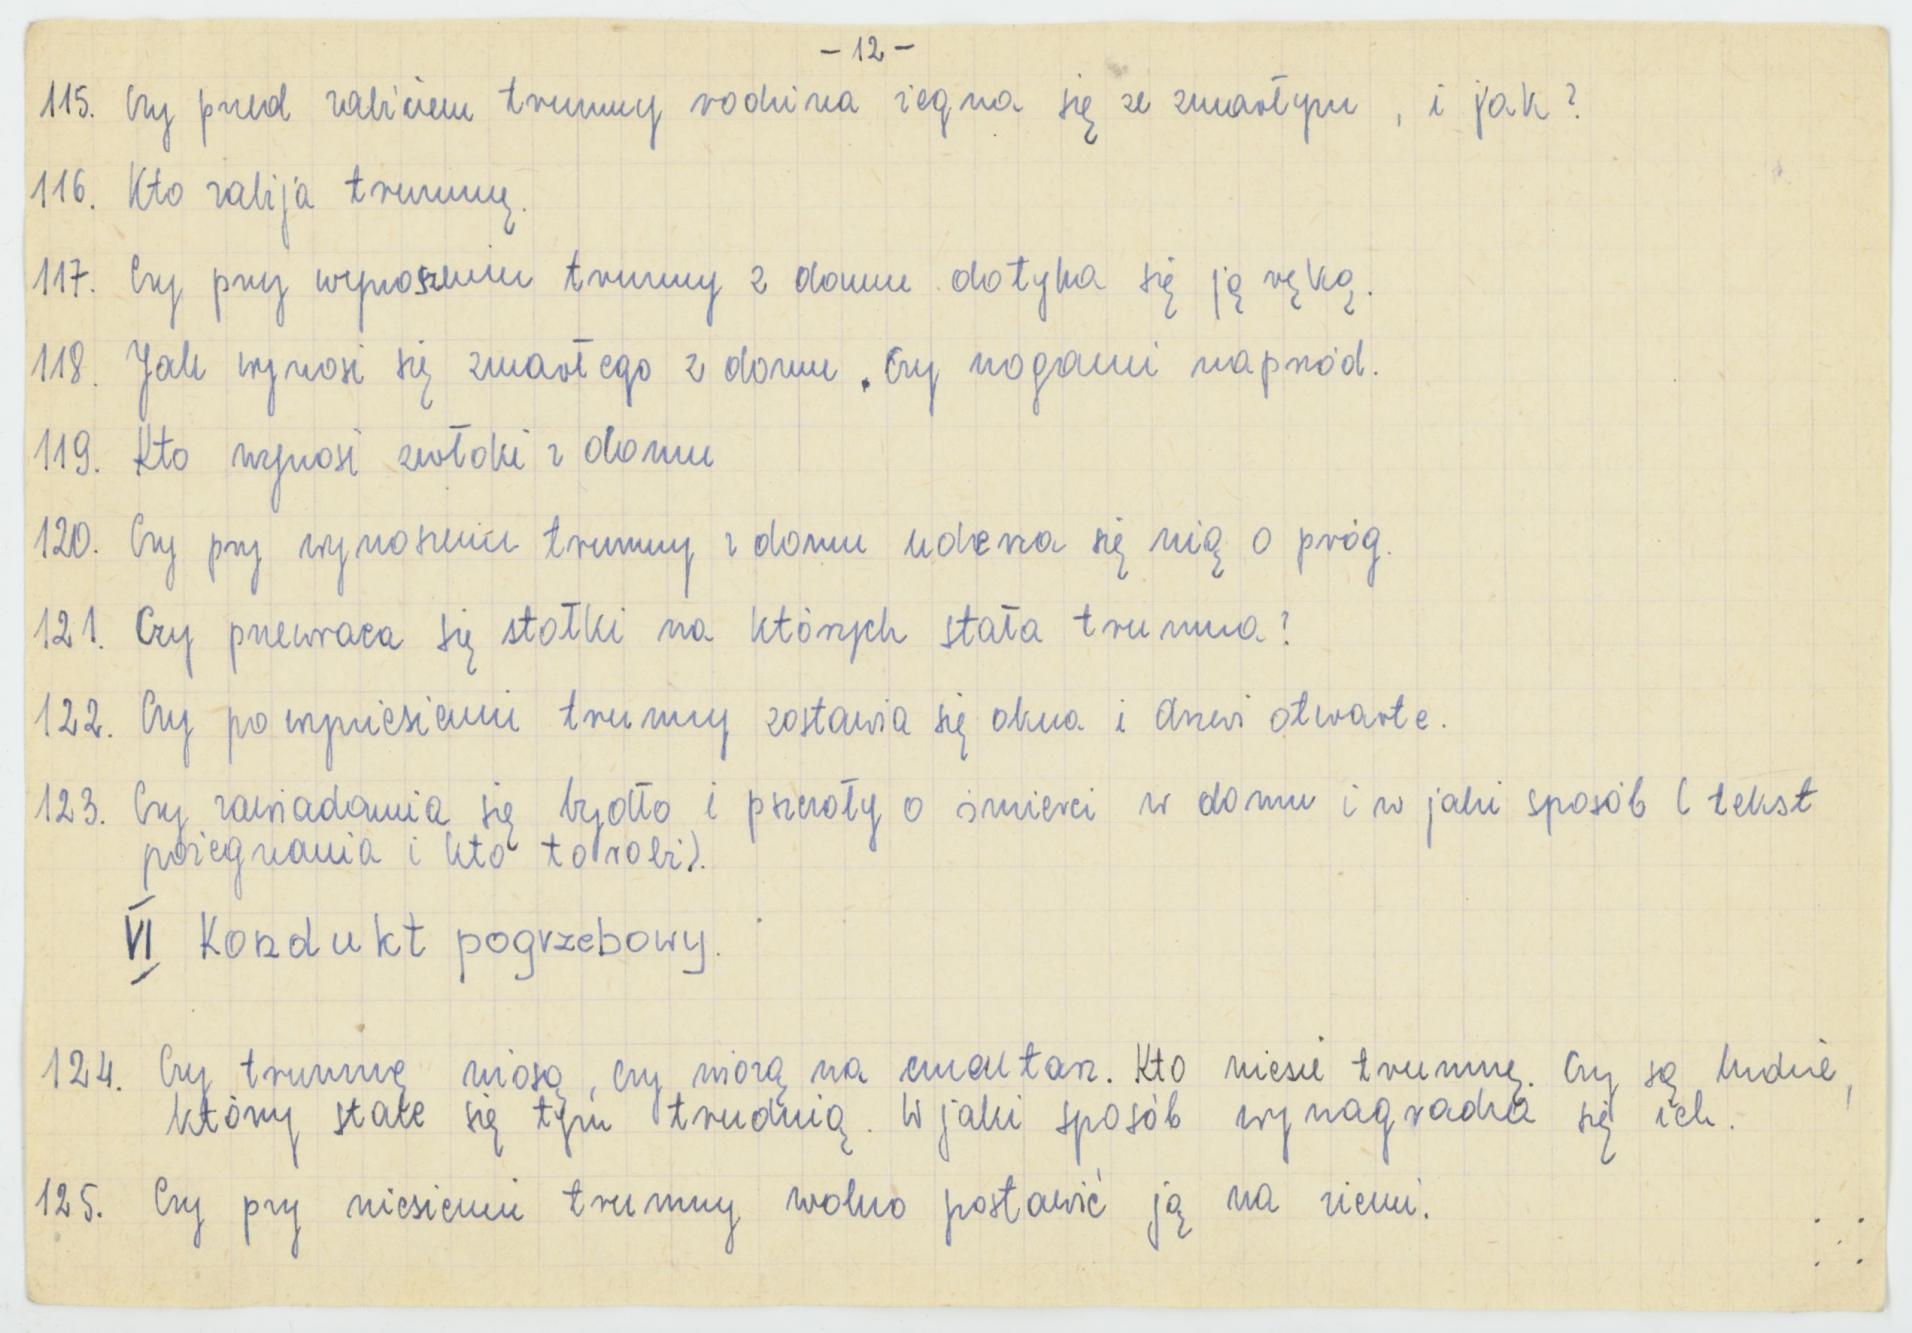 - 12 -
115. Czy przed zabiciem trumny rodzina żegna się ze zmarłym , i jak?
116. Kto zabija trumnę.
117. Czy przy wynoszeniu trumny z domu dotyka się ją ręką.
118. Jak wynosi się zmarłego z domu . Czy nogami naprzód.
119. Kto wynosi zwłoki z domu
120. Czy przy wynoszeniu trumny z domu uderza się nią o próg.
121. Czy przewraca się stołki na których stała trumna?
122. Czy po wyniesieniu trumny zostawia się okna i drzwi otwarte.
123. Czy zawiadamia się bydło i pszczoły o śmierci w domu i w jaki sposób ( tekst
pożegnania i kto to robi).
VI Kondukt pogrzebowy.
124. Czy trumnę niosą, czy wiozą na cmentarz. Kto niesie trumnę. Czy są ludzie,
którzy stale się tym trudnią. W jaki sposób wynagradza się ich.
125. Czy przy niesieniu trumny wolno postawić ją na ziemi.